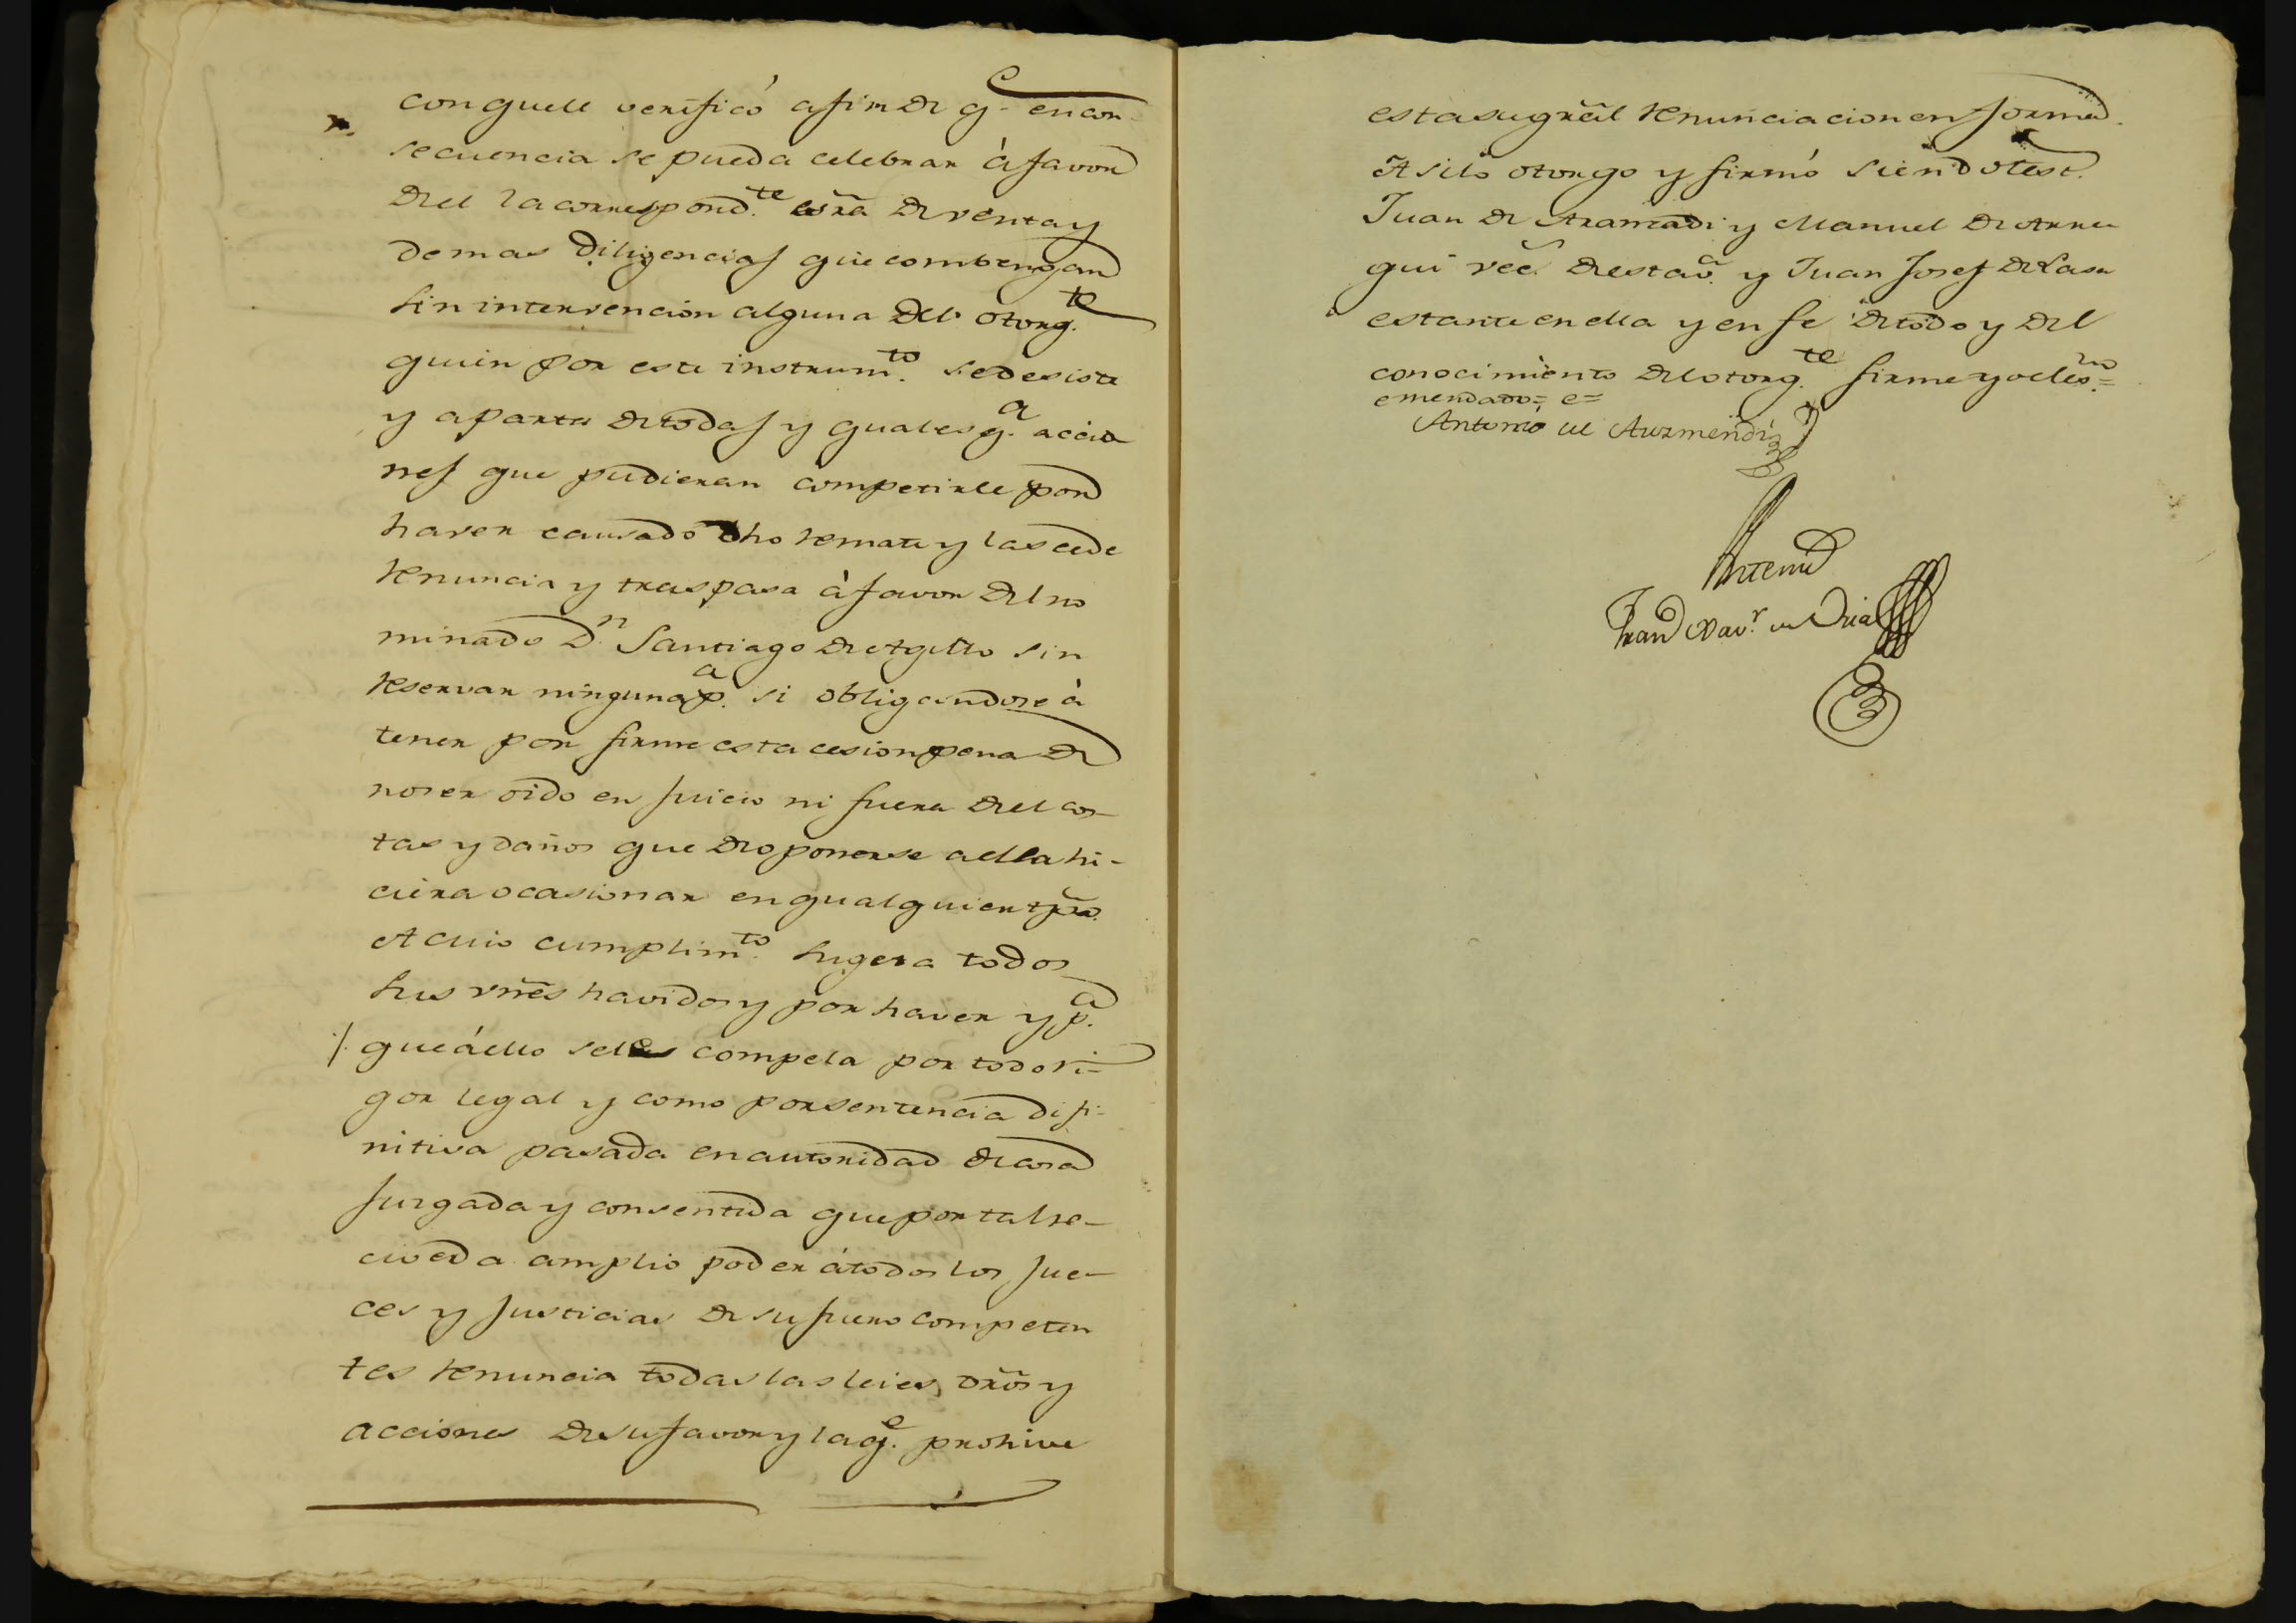 con quele verificó afin de q.e en con-
secuencia se pueda celebrar à favor
de el la correspond.te esrã de venta y
demas diligencias que combengan
sin intervencion alguna del otorg.te
quien por este instrum.to se desiste
y aparta de todas y quales q.a accio
nes que pudieran competirle por
haver causado dho remate y las cede
renuncia y traspasa à favor del no
minado D.n Santiago de
sin
reservar ninguna p.a si obligandose à
tener por firme esta cesion pena de
no ser oido en juicio ni fuera de el cos-
tas y daños que de oponerse a ella hi-
ciera ocasionar en qualquier tpõ.
A cuio cumplim.to sugeta todos
sus vñes havidos y por haver y p.a
que áello se le compela por todo ri-
gor legal y como por sentencia difi-
nitiva pasada en autoridad de cosa
juzgada y consentida que por tal re-
cive da amplio poder átodos los Jue-
ces y Justicias de su fuero competen
tes renuncia todas las leies, drõs y
acciones de su favor y la q.e prohive
esta su grãl renunciacion en forma.
Asi lo otorgo y firmó siendo test.
Juan de Aramadi y Manuel de Arre
gui vec.s de esta v.a y Juan Josef de Lasa
estante en ella y en fe de todo y del
conocimiento del otorg.te firme yo el es.no=
emendado= e=
Antonio de Aurmendi
Antemi
Fran.co Xav.r de